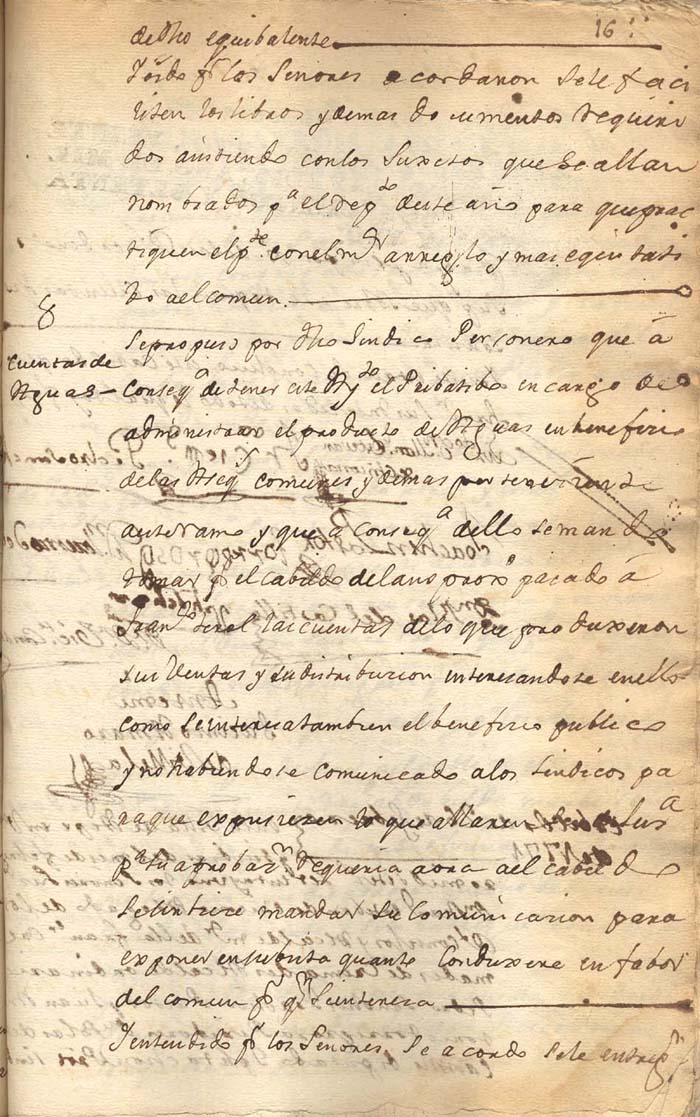 16
de dho equibalente
Y oydo pr los Señores acordaron se le faci
liten los libros y demas documentos requiri
dos asistiendo con los Suxetos que se allan
nombrados pa el repto de este año para que prac
tiquen el con el mr arreglo y mas equitati
bo al comun.
8
Se propuso por dho Sindico Personero que á
Cuentas de
Aguas
Conseqa de tener este Ayto el Pribatibo encargo de
administrar el producto de Aguas en beneficio
de las Aseqs comunes y demas perteneciente
a este ramo y que a conseqa dello se mando
tomar pr el cabildo del ano proxo pasado á
Franco las cuentas de lo que produxeron
sus Ventas y su distribucion interesandose en ello
como se interesa tambien el beneficio publico
y no habiendose comunicado a los Sindicos pa
ra que expusieren lo que allaren
pa su aprobaon requeria aora al cabildo
se sirbiese mandar su Comunicacion para
exponer en su bista quante Conduxere en fabor
del comun pr qn se interesa
Y entendido pr los Señores, se acordo se le entreguen